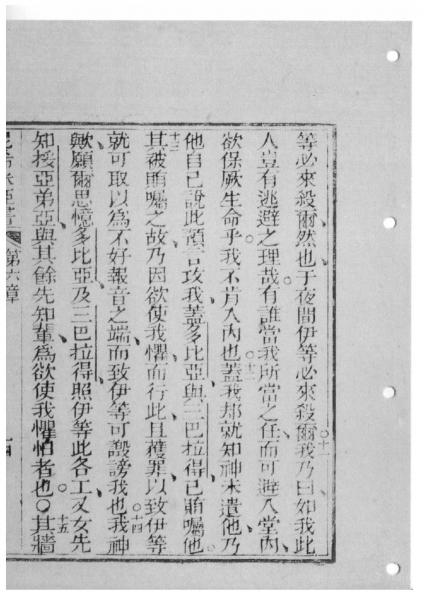 等必來殺爾然也于夜間伊等必來殺爾十一我乃曰如我此
人豈有逃避之理哉有誰當我所當之任而可避入堂內
欲保厥生命乎我不肯入內也十二蓋我却就知神未遣他乃
他自己說此預言攻我蓋多比亞與三巴拉得已賄囑他
十三其被賄囑之故乃因欲使我懼而行此且獲罪以致伊等
就可取以為不好報音之端而致伊等可譭謗我也十四我神
歟願爾思憶多比亞及三巴拉得照伊等此各工又女先
知挼亞弟亞與其餘先知輩為欲使我懼怕者也○十五其牆
第六章